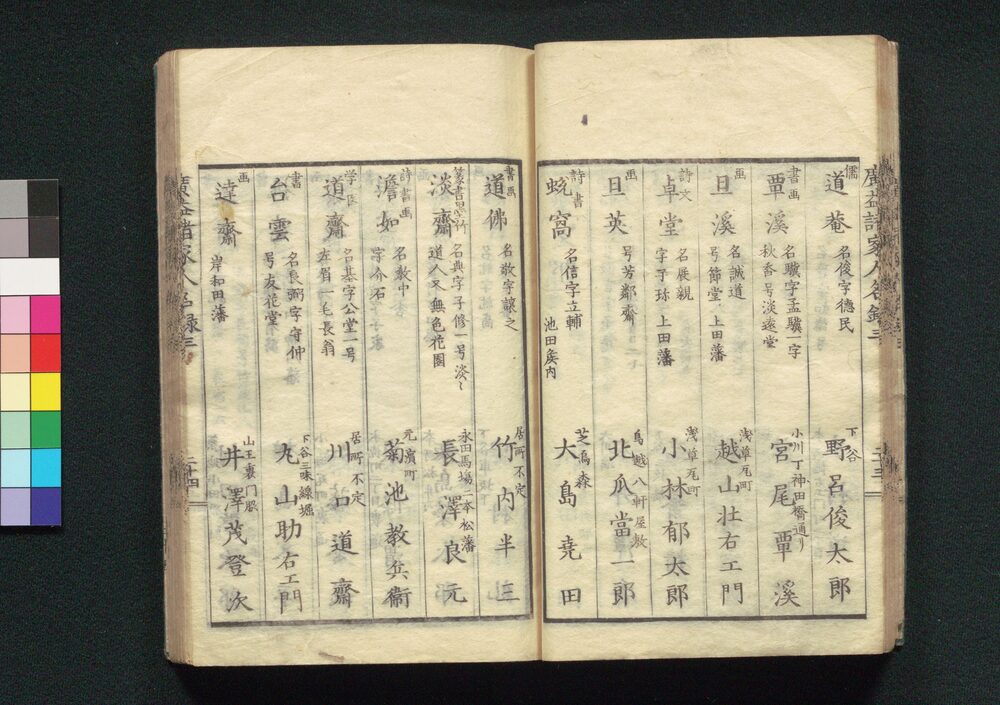 儒
道菴
名俊字德民
下谷
野呂俊太郎
書画
覃溪
名驥字孟驥一字
秋香号淡遠堂
小川丁神田橋通り
宮尾覃溪
画
旦溪
名誠道
号節堂 上田藩
浅草瓦町
越山壮右エ門
詩文
卓堂
名展親
字子珎 上田藩
浅草瓦町
小林郁太郎
画
旦英
号芳鄰齋
鳥越八軒屋敷
北爪當一郎
詩書
蛻窩
名信字立輔
池田矦内
芝烏森
大島堯田
廣益諸家人名録三
二十三
書画
道佛
名敬字讓之
居所不定
竹内半三
篆書墨竹
淡齋
名典字子修一号淡々
道人又無色花園
永田馬場二本松藩
長澤良元
詩書画
澹如
名教中
字介石
元濱町
菊池教兵衞
学医
道齋
名基字公堂一号
左眉一毛長翁
居所不定
川口道齋
書
台雲
名長弼字守仲
号友花堂
下谷三味線堀
丸山助右エ門
画
達齋
岸和田藩
山王裏門脇
井澤茂登次
廣益諸家人名録三
二十四